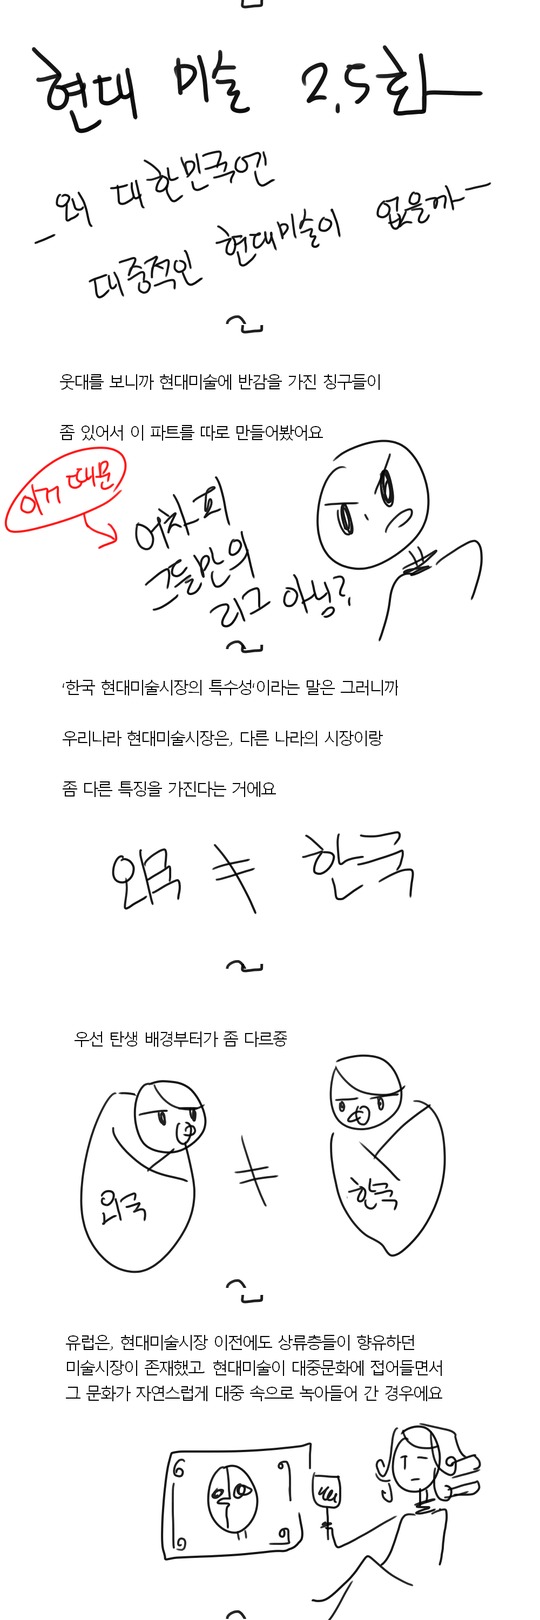 현대 미술 2.5화
- 왜 대한민국엔
대중적인 현대미술이 없을까 -
웃대를 보니까 현대미술에 반감을 가진 칭구들이
좀 있어서 이 파트를 따로 만들어봤어요
이거 때문
어차피
그들만의
리그 아님?
'한국 현대미술시장의 특수성'이라는 말은 그러니까
우리나라 현대미술시장은, 다른 나라의 시장이랑
좀 다른 특징을 가진다는 거에요
외국 ≠ 한국
우선 탄생 배경부터가 좀 다르죵
외국 ≠ 한국
유럽은, 현대미술시장 이전에도 상류층들이 향유하던
미술시장이 존재했고. 현대미술이 대중문화에 접어들면서
그 문화가 자연스럽게 대중 속으로 녹아들어 간 경우에요